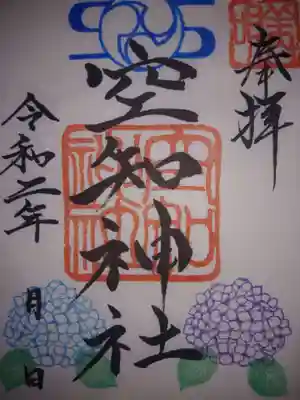 奉拝
空知神社
令和二年
月
日